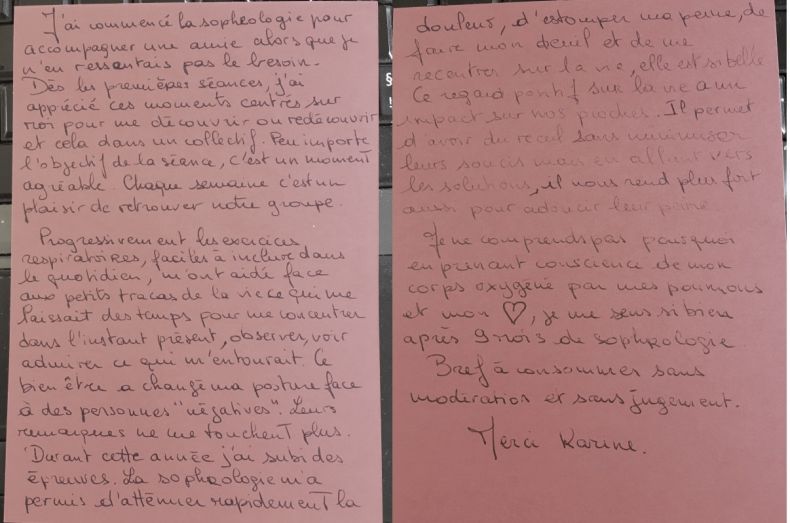 J'ai commencé la sophrologie pour
accompagner une amie alors que je
n'en ressentais pas le besoin.
Dès les premières séances, j'ai
apprécié ces moments centrés sur
moi pour me découvrir ou redécouvrir
et cela dans un collectif. Peu importe
l'objectif de la séance, c'est un moment
agréable. Chaque semaine c'est un
plaisir de retrouver notre groupe.
Progressivement les exercices
respiratoires, faciles à inclure dans
le quotidien, m'ont aidé face
aux petits tracas de la vie ce qui me
laissait des temps pour me concentrer
dans l'instant présent, observer, voir
admirer ce qui m'entourait. Ce
bien être a changé ma posture face
à des personnes "négatives". Leurs
remarques ne me touchent plus.
Durant cette année j'ai subi des
épreuves. La sophrologie m'a
permis d'atténuer rapidement la
douleur, d'estomper ma peine, de
faire mon deuil et de me
recentrer sur la vie, elle est si belle
Ce regard positif sur la vie a un
impact sur nos proches. Il permet
d'avoir du recul sans minimiser
leurs soucis mais en allant vers
les solutions, il nous rend plus fort
aussi pour adoucir leur peine.
Je ne comprends pas pourquoi
en prenant conscience de mon
corps oxygéné par mes poumons
et mon ♡, je me sens si bien
après 9 mois de sophrologie.
Bref à consommer sans
modération et sans jugement.
Merci Karine.